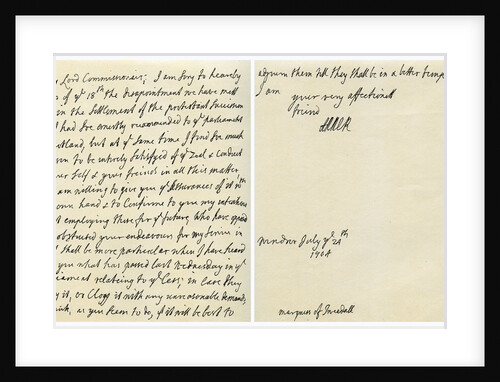 Lord Commissioner; I am sory to hear by
of ye 18th the disapointment we have mett
in the Settlement of the protestant Succession
had soe ernestly recommended to ye parliament
Scotland, but at ye Same time I find soe much
to be entirely Satisfyed of ye Zeal & Conduct
Self & your freinds in all this matter,
am willing to give you ye Assurances of it in
own hand & to Confirme to you my intentions
employing those for ye future, who have
obstructed your endeavours for my Service in
I shall be more particular when I have heard
you what has passed last Wednesday in ye
relating to ye Cess; in Case they
it, or Clogg it with any unreasonable demand,
as you seem to do, it will be best to
adjourn them till they shall be in a better temp
I am
your very affectionett
freind
Windsor July ye
1704
marquis of